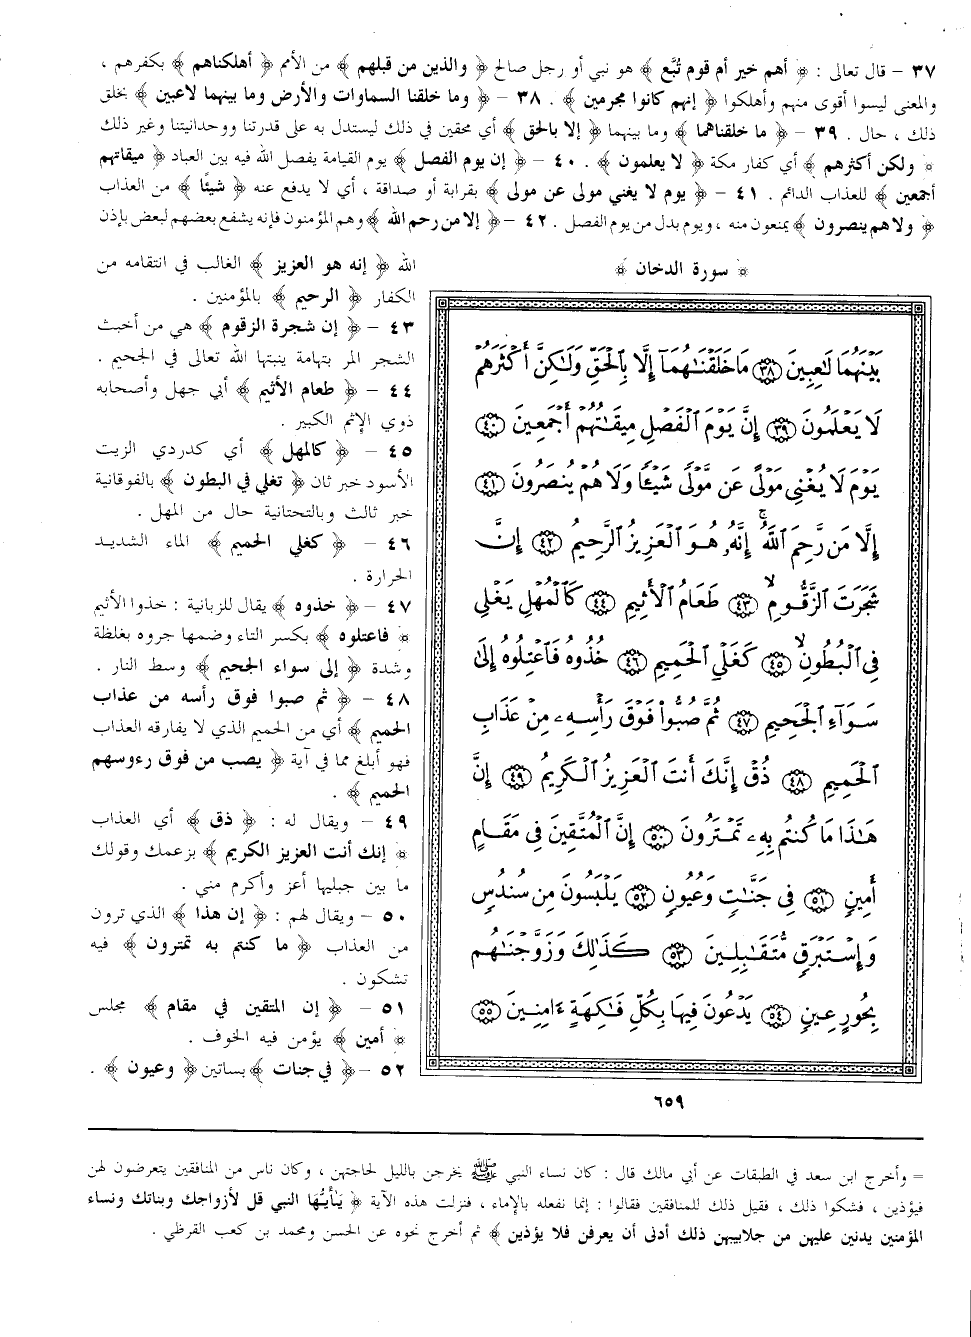 ٣٧ – قال تعالى : ﴿ أهم خير أم قوم تُبَّع ﴾ هو نبي أو رجل صالح ﴿ والذين من قبلهم ﴾ من الأمم ﴿ أهلكناهم ﴾ بكفرهم ،
والمعنى ليسوا أقوى منهم وأهلكوا ﴿ إنهم كانوا مجرمين ﴾ . ٣٨ – ﴿ وما خلقنا السماوات والأرض وما بينهما لاعبين ﴾ بخلق
ذلك ، حال . ٣٩ – ﴿ ما خلقناهما ﴾ وما بينهما ﴿ إلا بالحق ﴾ أي محقين في ذلك ليستدل به على قدرتنا ووحدانيتنا وغير ذلك
﴿ ولكن أكثرهم ﴾ أي كفار مكة ﴿ لا يعلمون ﴾ . ٤٠ – ﴿ إن يوم الفصل ﴾ يوم القيامة يفصل الله فيه بين العباد ﴿ ميقاتهم
أجمعين ﴾ للعذاب الدائم . ٤١ – ﴿ يوم لا يغني مولى عن مولى ﴾ بقرابة أو صداقة ، أي لا يدفع عنه ﴿ شيئًا ﴾ من العذاب
﴿ ولا هم ينصرون ﴾ يمنعون منه ، ويوم بدل من يوم الفصل . ٤٢ – ﴿ إلا من رحم الله ﴾ وهم المؤمنون فإنه يشفع بعضهم لبعض بإذن
الله ﴿ إنه هو العزيز ﴾ الغالب في انتقامه من
الكفار ﴿ الرحيم ﴾ بالمؤمنين .
٤٣ – ﴿ إن شجرة الزقوم ﴾ هي من أخبث
الشجر المر بتهامة ينبتها الله تعالى في الجحيم .
٤٤ – ﴿ طعام الأثيم ﴾ أبي جهل وأصحابه
ذوي الإثم الكبير .
٤٥ – ﴿ كالمهل ﴾ أي كدردي الزيت
الأسود خبر ثان ﴿ تغلي في البطون ﴾ بالفوقانية
خبر ثالث وبالتحتانية حال من المهل .
٤٦ – ﴿ كغلي الحميم ﴾ الماء الشديد
الحرارة .
٤٧ – ﴿ خذوه ﴾ يقال للزبانية : خذوا الأثيم
﴿ فاعتلوه ﴾ بكسر التاء وضمها جروه بغلظة
وشدة ﴿ إلى سواء الجحيم ﴾ وسط النار .
٤٨ – ﴿ ثم صبوا فوق رأسه من عذاب
الحميم ﴾ أي من الحميم الذي لا يفارقه العذاب
فهو أبلغ مما في آية ﴿ يصب من فوق رءوسهم
الحميم ﴾ .
٤٩ – ويقال له : ﴿ ذق ﴾ أي العذاب
﴿ إنك أنت العزيز الكريم ﴾ بزعمك وقولك
ما بين جبليها أعز وأكرم مني .
٥٠ – ويقال لهم : ﴿ إن هذا ﴾ الذي ترون
من العذاب ﴿ ما كنتم به تمترون ﴾ فيه
تشكون .
٥١ – ﴿ إن المتقين في مقام ﴾ مجلس
﴿ أمين ﴾ يؤمن فيه الخوف .
٥٢ – ﴿ في جنات ﴾ بساتين ﴿ وعيون ﴾ .
﴿ سورة الدخان ﴾
بَيْنَهُمَا لَٰعِبِينَ ٣٨ مَا خَلَقْنَٰهُمَآ إِلَّا بِٱلْحَقِّ وَلَٰكِنَّ أَكْثَرَهُمْ
لَا يَعْلَمُونَ ٣٩ إِنَّ يَوْمَ ٱلْفَصْلِ مِيقَٰتُهُمْ أَجْمَعِينَ ٤٠
يَوْمَ لَا يُغْنِى مَوْلًى عَن مَّوْلًى شَيْـًٔا وَلَا هُمْ يُنصَرُونَ ٤١
إِلَّا مَن رَّحِمَ ٱللَّهُ ۚ إِنَّهُۥ هُوَ ٱلْعَزِيزُ ٱلرَّحِيمُ ٤٢ إِنَّ
شَجَرَتَ ٱلزَّقُّومِ ۙ ٤٣ طَعَامُ ٱلْأَثِيمِ ٤٤ كَٱلْمُهْلِ يَغْلِى
فِى ٱلْبُطُونِ ۙ ٤٥ كَغَلْىِ ٱلْحَمِيمِ ٤٦ خُذُوهُ فَٱعْتِلُوهُ إِلَىٰ
سَوَآءِ ٱلْجَحِيمِ ٤٧ ثُمَّ صُبُّوا۟ فَوْقَ رَأْسِهِۦ مِنْ عَذَابِ
ٱلْحَمِيمِ ٤٨ ذُقْ إِنَّكَ أَنتَ ٱلْعَزِيزُ ٱلْكَرِيمُ ٤٩ إِنَّ
هَٰذَا مَا كُنتُم بِهِۦ تَمْتَرُونَ ٥٠ إِنَّ ٱلْمُتَّقِينَ فِى مَقَامٍ
أَمِينٍ ٥١ فِى جَنَّٰتٍ وَعُيُونٍ ٥٢ يَلْبَسُونَ مِن سُندُسٍ
وَإِسْتَبْرَقٍ مُّتَقَٰبِلِينَ ٥٣ كَذَٰلِكَ وَزَوَّجْنَٰهُم
بِحُورٍ عِينٍ ٥٤ يَدْعُونَ فِيهَا بِكُلِّ فَٰكِهَةٍ ءَامِنِينَ ٥٥
٦٥٩
= وأخرج ابن سعد في الطبقات عن أبي مالك قال : كان نساء النبي ﷺ يخرجن بالليل لحاجتهن ، وكان ناس من المنافقين يتعرضون لهن
فيؤذين ، فشكوا ذلك ، فقيل ذلك للمنافقين فقالوا : إنما نفعله بالإماء ، فنزلت هذه الآية ﴿ يَٰأَيُّهَا النبي قل لأزواجك وبناتك ونساء
المؤمنين يدنين عليهن من جلابيبهن ذلك أدنى أن يعرفن فلا يؤذين ﴾ ثم أخرج نحوه عن الحسن ومحمد بن كعب القرظي .